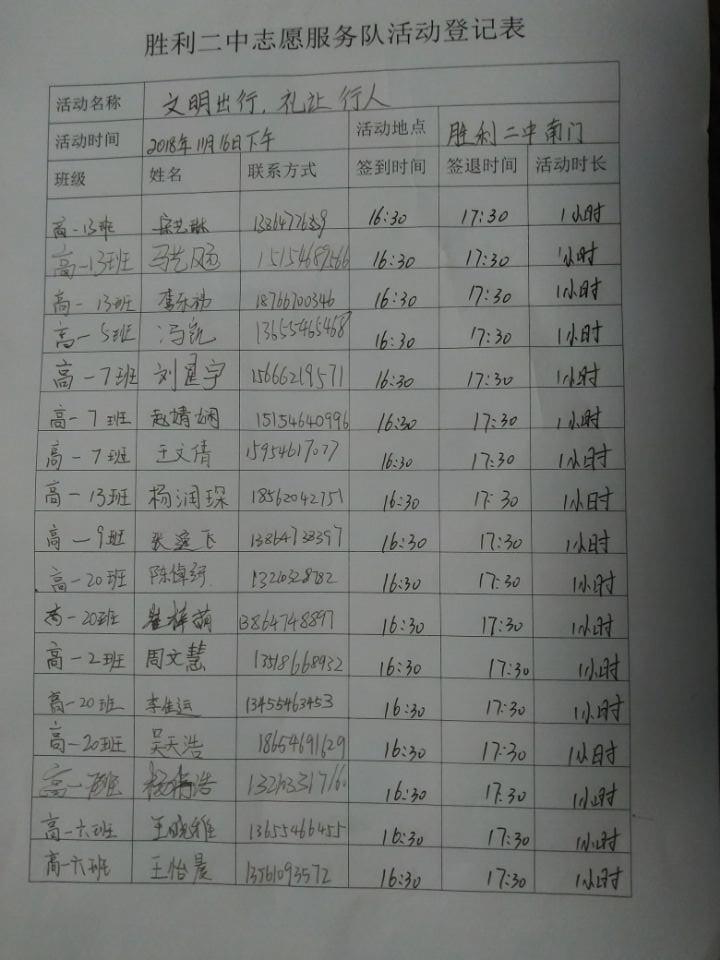 胜利二中志愿服务队活动登记表
活动名称 文明出行,礼让行人
活动时间 2018年11月16日下午 活动地点 胜利二中南门
班级 姓名 联系方式 签到时间 签退时间 活动时长
高一13班 16:30 17:30 1小时
高一13班 16:30 17:30 1小时
高一13班 18766700346 16:30 17:30 1小时
高一5班 冯凯 13655465468 16:30 17:30 1小时
高一7班 刘星宇 15666219571 16:30 17:30 1小时
高一7班 赵婧娴 15154640996 16:30 17:30 1小时
高一7班 王文倩 15954617077 16:30 17:30 1小时
高一13班 杨润琛 18562042751 16:30 17:30 1小时
高一9班 张逸飞 13864738397 16:30 17:30 1小时
高一20班 16:30 17:30 1小时
高一20班 崔梓萌 13864748897 16:30 17:30 1小时
高一2班 周文慧 13518668932 16:30 17:30 1小时
高一20班 李佳运 13455463453 16:30 17:30 1小时
高一20班 吴天浩 18654691629 16:30 17:30 1小时
高一 16:30 17:30 1小时
高一六班 王晓雅 13655466455 16:30 17:30 1小时
高一六班 王怡晨 13561093572 16:30 17:30 1小时